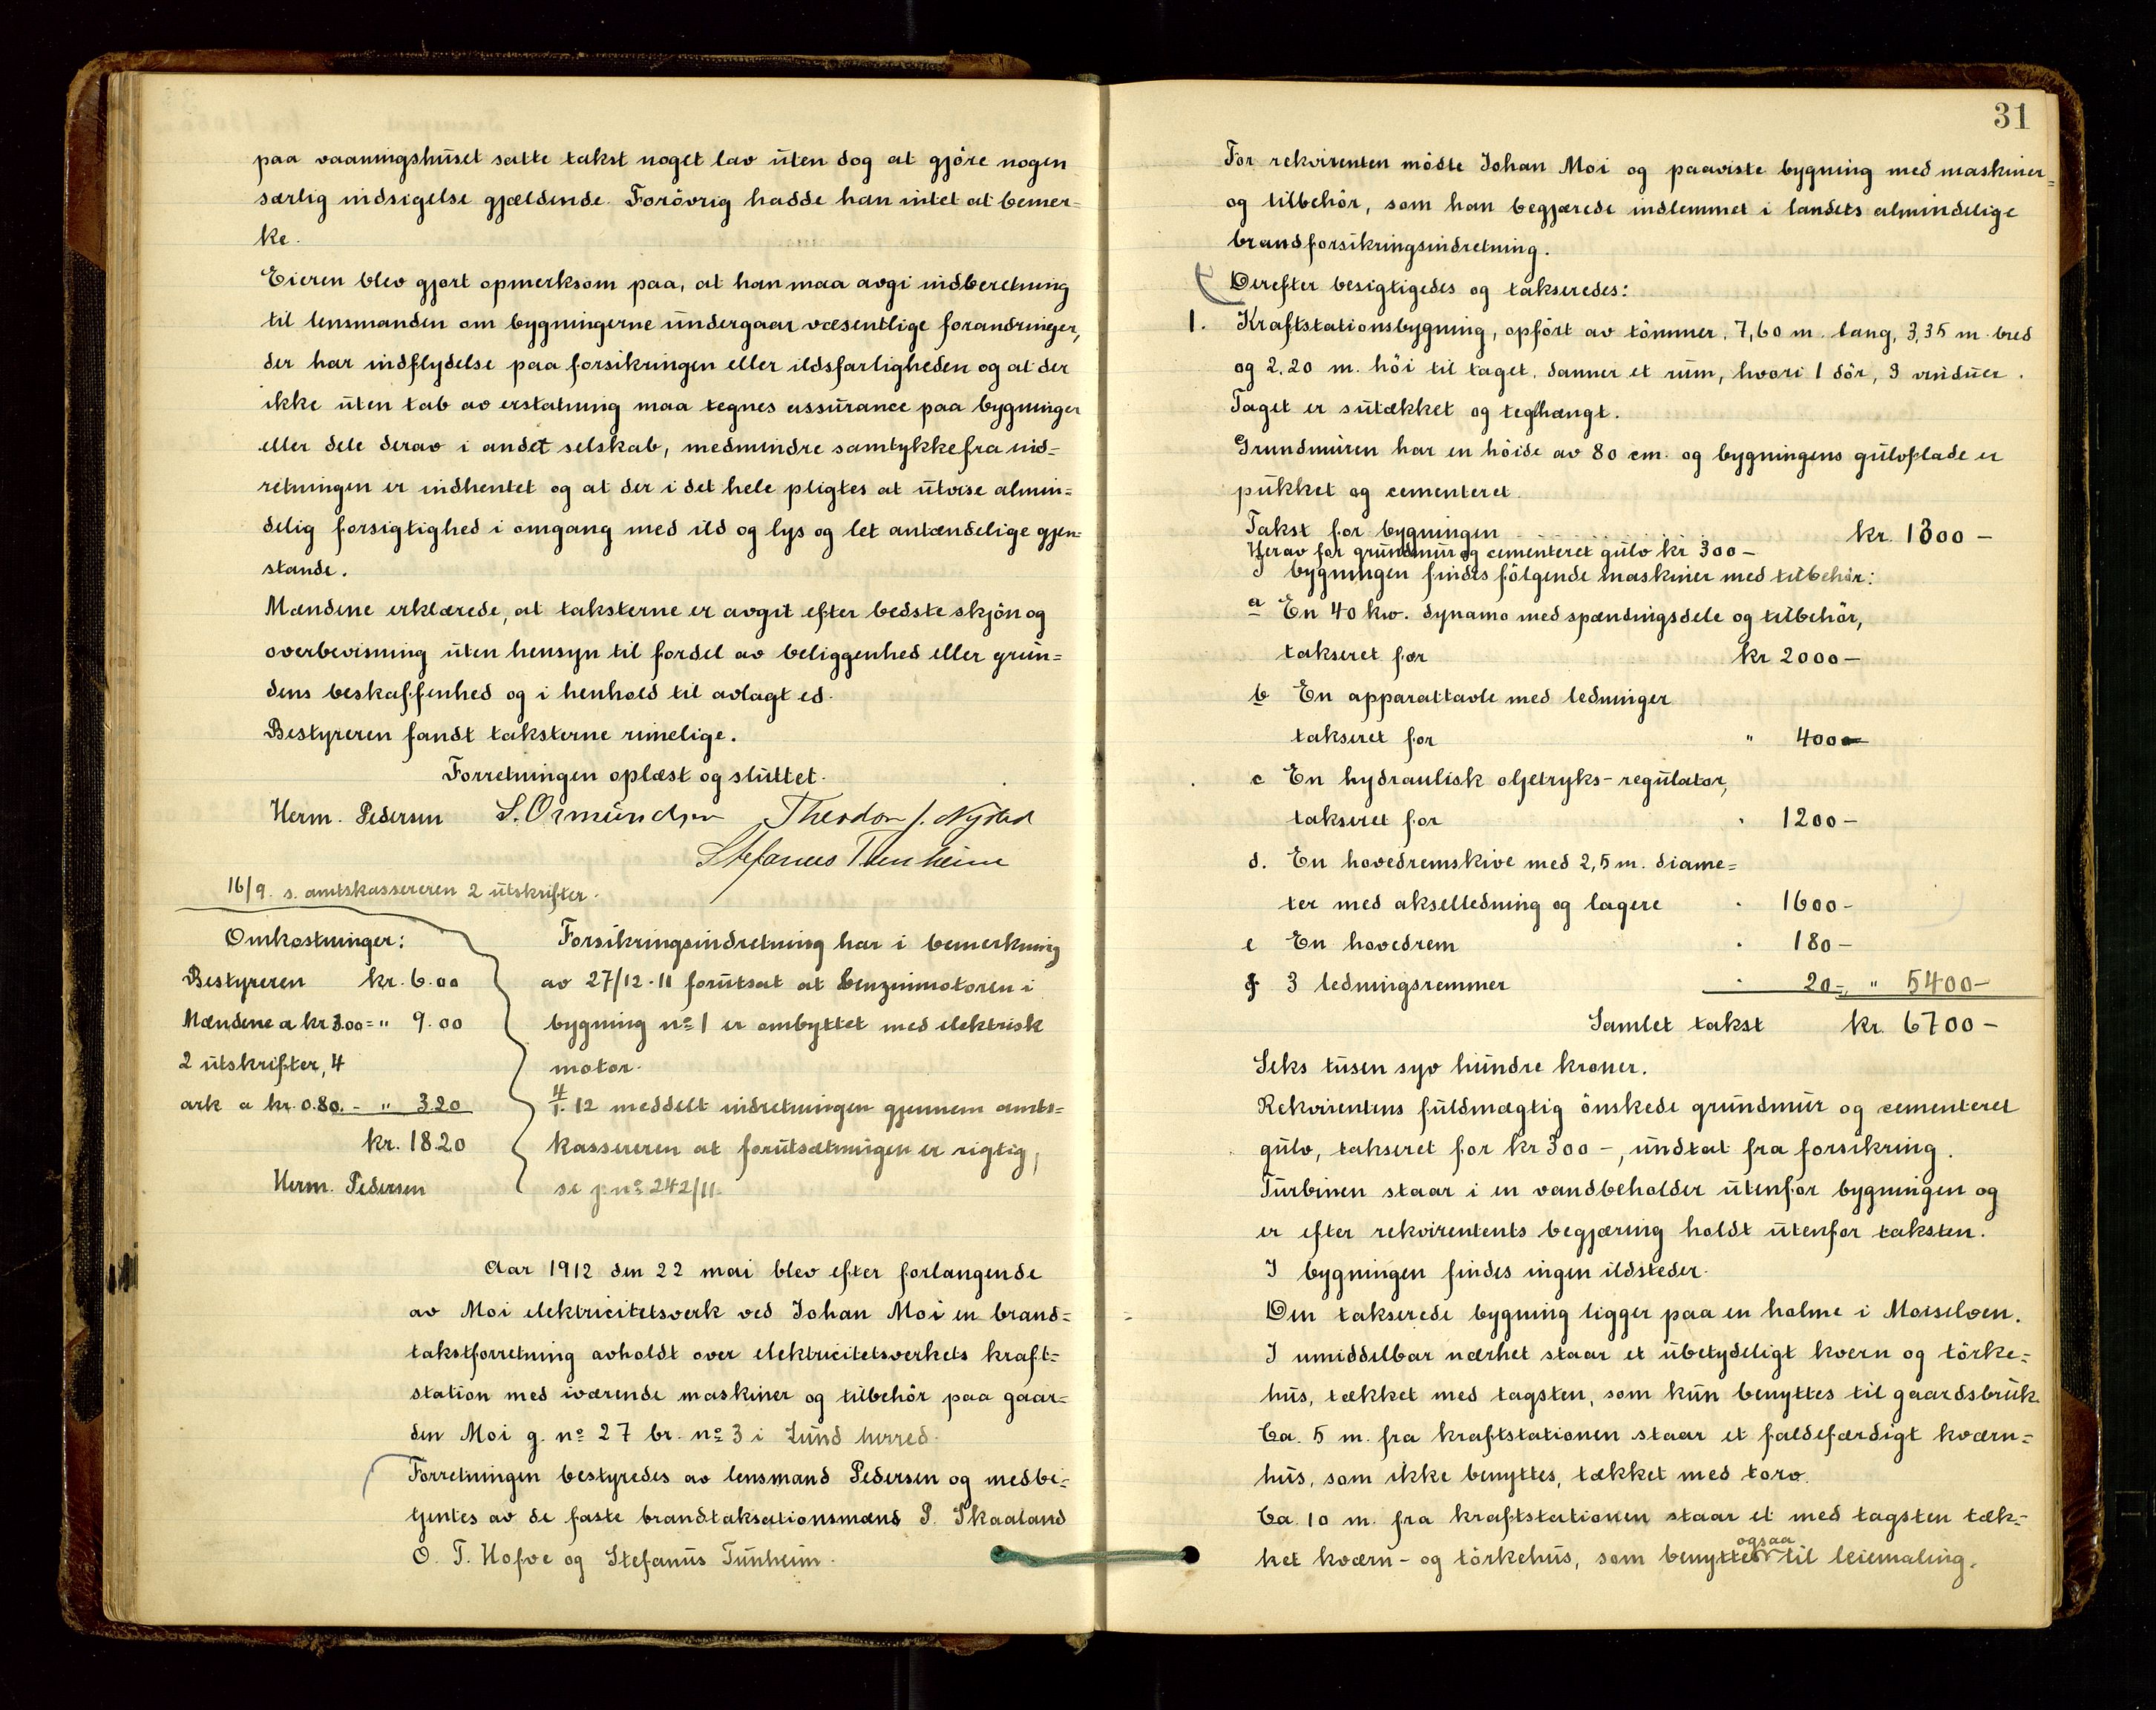 paa vaaningshuset satte takst noget lav uten dog at gjöre nogen
særlig indsigelse gjældende. Forövrig hadde han intet at bemer=
ke.
Eieren blev gjort opmerksom paa, at han maa avgi indberetning
til lensmanden om bygningerne undergaar væsentlige forandringer,
der har indflydelse paa forsikringen eller ildsfarligheden og at der
ikke uten tab av erstatning maa tegnes assurance paa bygninger
eller dele derav i andet selskab, medmindre samtykke fra ind=
retningen er indhentet og at der i det hele pligtes at utvise almin=
delig forsigtighed i omgang med ild og lys og let antændelige gjen=
stande.
Mændene erklærede, at taksterne er avgit efter bedste skjön og
overbevisning uten hensyn til fordel av beliggenhed eller grun=
dens beskaffenhed og i henhold til avlagt ed.
Bestyreren fandt taksterne rimelige.
Forretningen oplæst og sluttet.
Herm. Pedersen S. Osmundsen Theodor J. Nysted
Stefanus Tunheim
16/9. s. amtskassereren 2 utskrifter.
Omkostninger:
Bestyreren kr. 6.00
Mændene a kr 3.00 = " 9.00
2 utskrifter, 4
ark a kr. 0.80. - " 3.20
kr. 18.20
Herm. Pedersen
Forsikringsindretning har i bemerkning
av 27/12-11 forutsat at benzinmotoren i
bygning no 1 er ombyttet med elektrisk
motor.
4/1. 12 meddelt indretningen gjennem amts=
kassereren at forutsætningen er rigtig,
se j. no 242/11.
Aar 1912 den 22 mai blev efter forlangende
av Moi elektricitetsverk ved Johan Moi en brand=
takstforretning avholdt over elektricitetsverkets kraft=
station med iværende maskiner og tilbehör paa gaar=
den Moi g. no 27 br. no 3 i Lund herred.
Forretningen bestyredes av lensmand Pedersen og medbe=
tjentes av de faste brandtaksationsmænd P. Skaaland
O. T. Hofve og Stefanus Tunheim.
31
For rekvirenten mödte Johan Moi og paaviste bygning med maskiner=
og tilbehör, som han begjærede indlemmet i landets almindelige
brandforsikringsindretning.
Derefter besigtigedes og takseredes:
1. Kraftstationsbygning, opfört av tömmer, 7,60 m. lang, 3,35 m. bred
og 2,20 m. höi til taget, danner et rum, hvori 1 dör, 3 vinduer.
Taget er sutækket og teglhængt.
Grundmuren har en höide av 80 cm. og bygningens gulvflade er
pukket og cementeret.
Takst for bygningen kr. 1300 -
Herav for grundmur og cementeret gulv kr 300 -
I bygningen findes fölgende maskiner med tilbehör:
a En 40 kw. dynamo med spændingsdele og tilbehör,
takseret for kr 2000 -
b En apparattavle med ledninger
takseret for " 400 -
c En hydraulisk oljetryks-regulator,
takseret for " 1200 -
d. En hovedremskive med 2,5 m. diame=
ter med akselledning og lagere " 1600 -
e En hovedrem " 180 -
f 3 ledningsremmer " 20 -, " 5400 -
Samlet takst kr. 6700 -
Seks tusen syv hundre kroner.
Rekvirentens fuldmægtig önskede grundmur og cementeret
gulv, takseret for kr 300 -, undtat fra forsikring.
Turbinen staar i en vandbeholder utenfor bygningen og
er efter rekvirentents begjæring holdt utenfor taksten.
I bygningen findes ingen ildsteder.
Den takserede bygning ligger paa en holme i Moiselven.
I umiddelbar nærhet staar et ubetydeligt kvern og törke=
hus, tækket med tagsten, som kun benyttes til gaardsbruk.
Ca. 5 m. fra kraftstationen staar et faldefærdigt kværn=
hus, som ikke benyttes, tækket med torv.
Ca. 10 m. fra kraftstationen staar et med tagsten tæk=
ket kværn- og törkehus, som benyttes ogsaa til leiemaling.